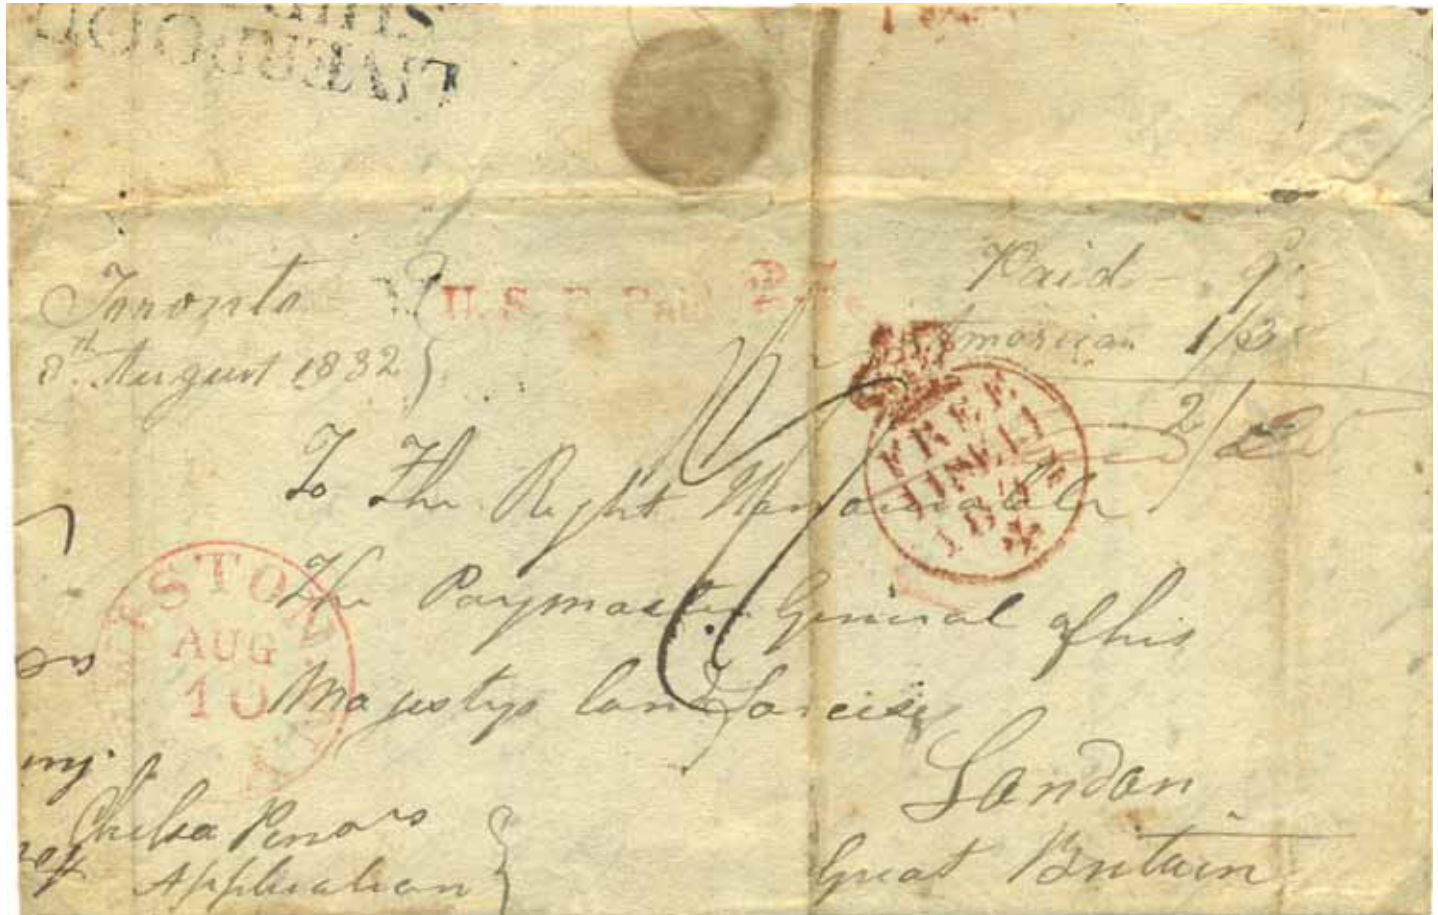 SHIP
LIVERPOOL
Toronto
8th August 1832
U.S. P. Paid
Paid 9
American 1/3
2/
FREE
1832
To The Right Honourable
The Paymaster General of his
Majestys land forces
London
Great Britain
LEWISTON N.Y.
AUG
10
Chelsea Penrs
Application